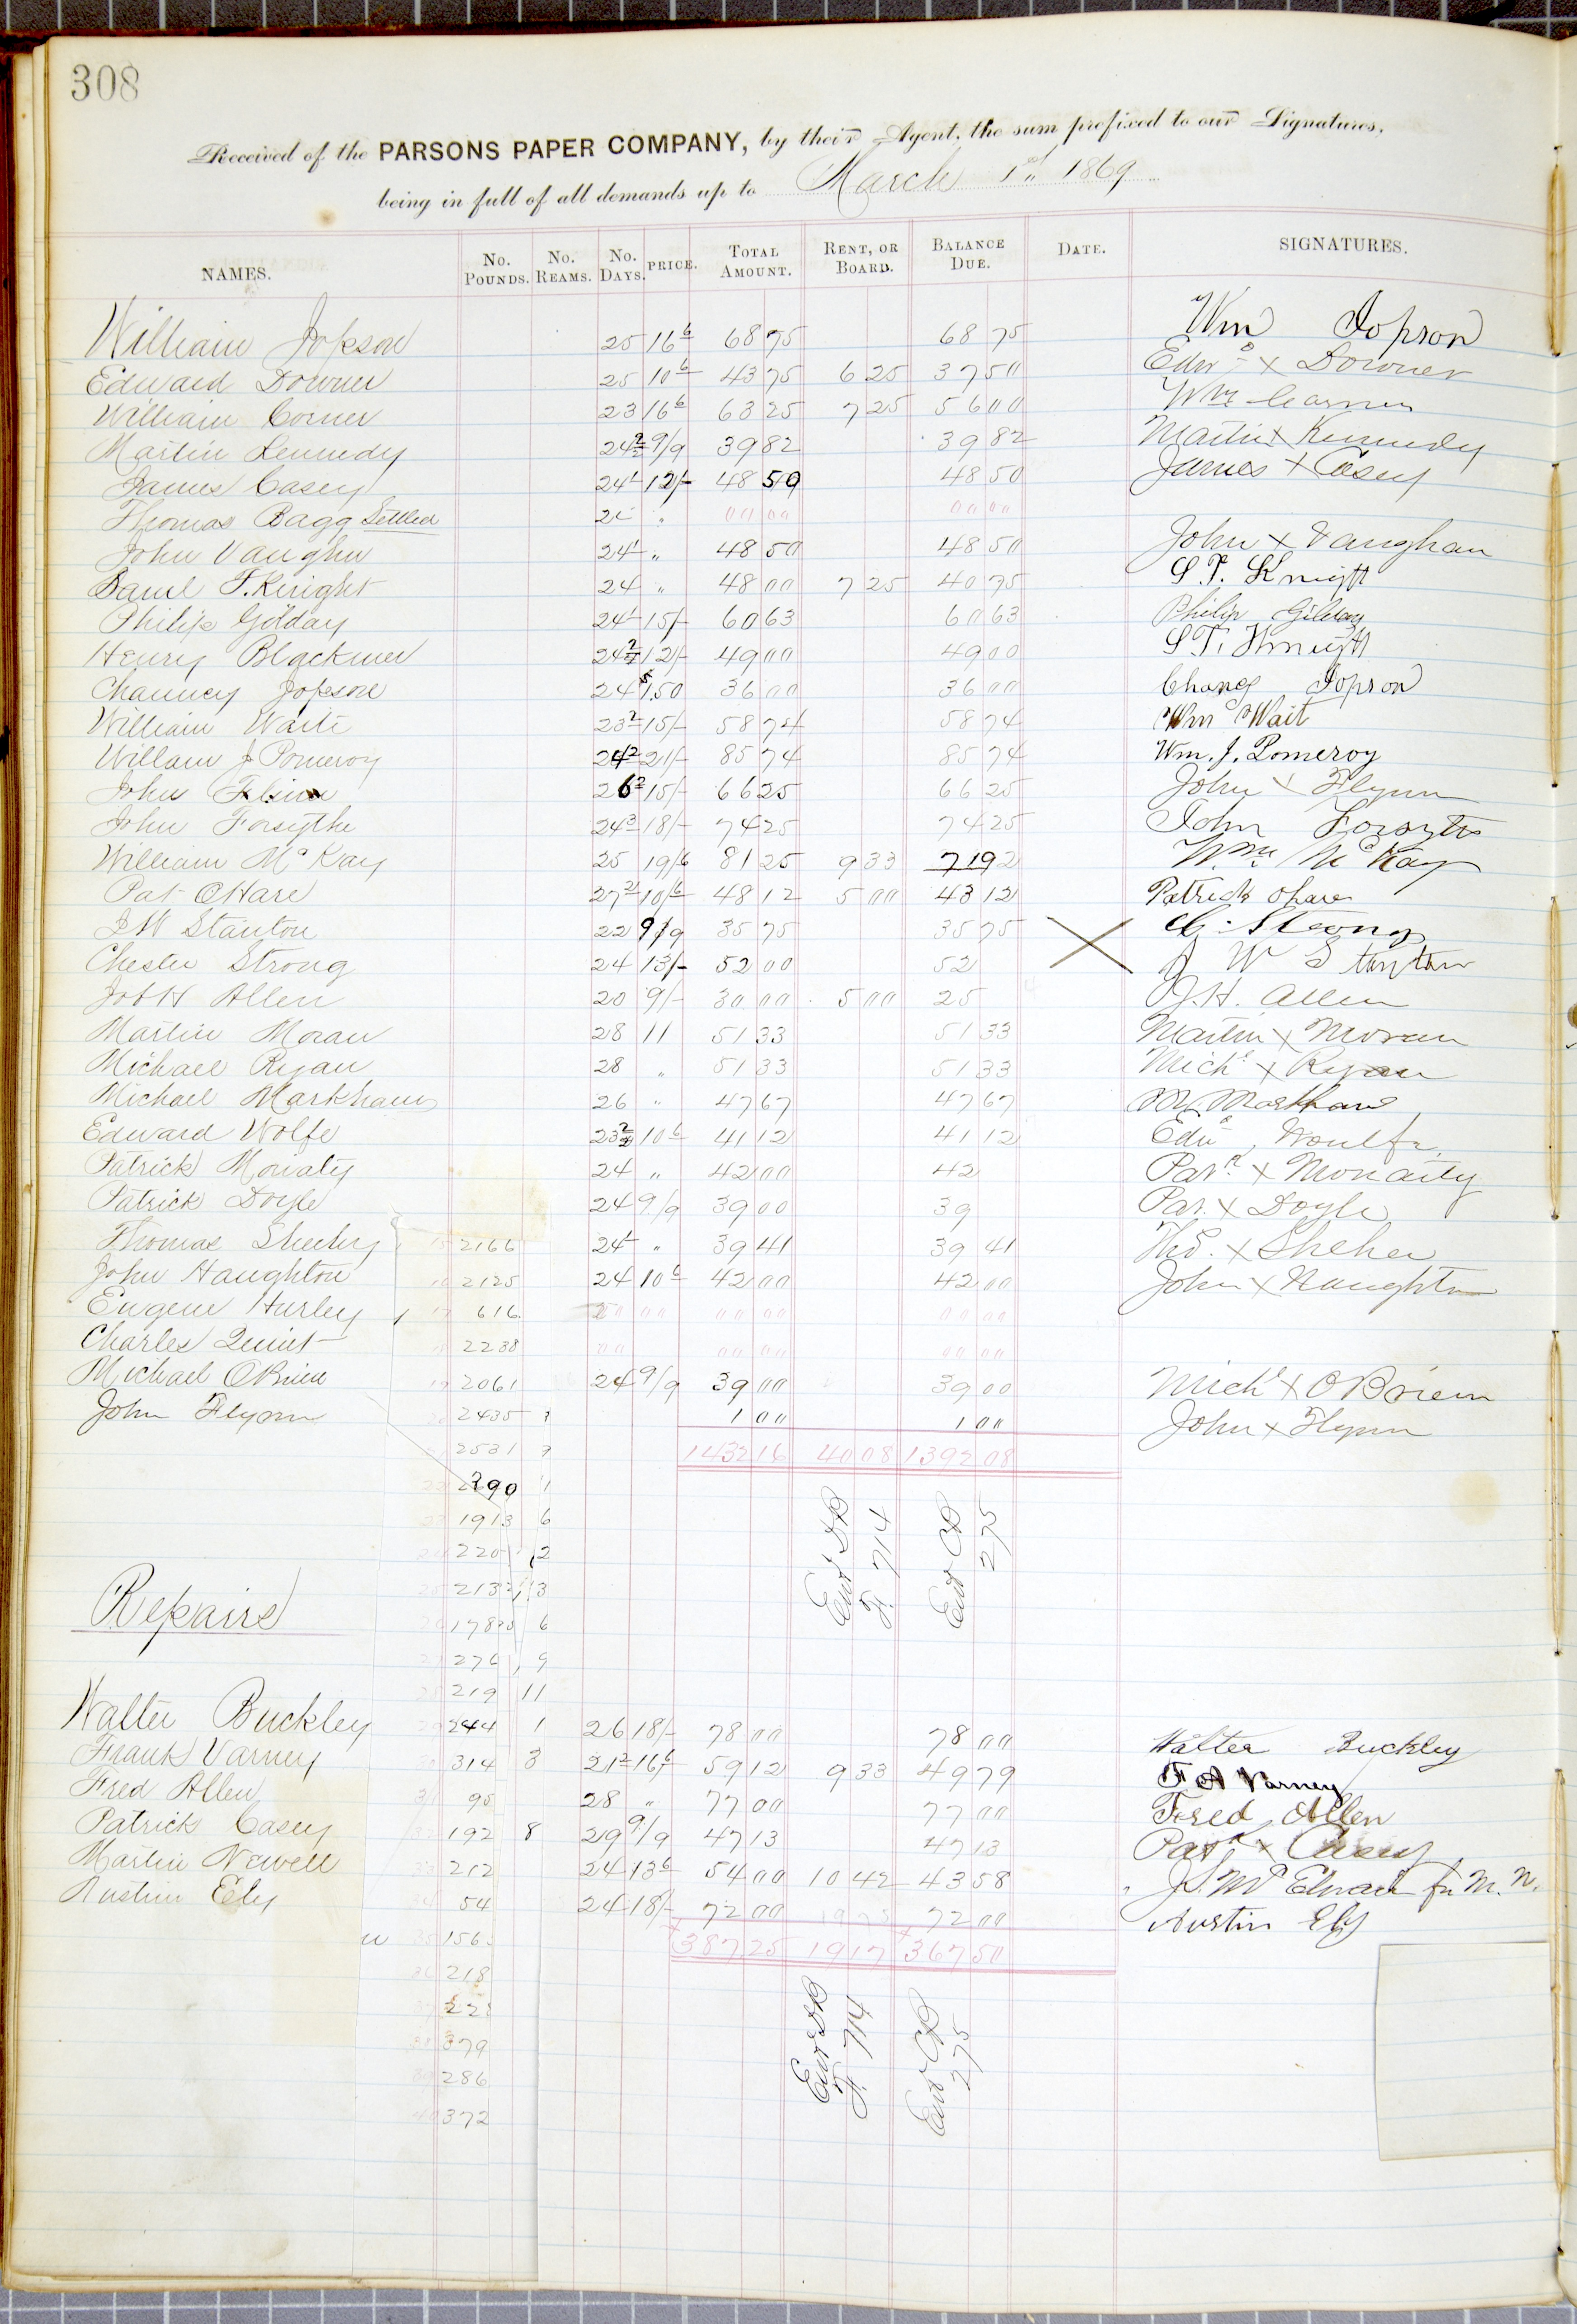 308
Received of the PARSONS PAPER COMPANY, by their Agent, the sum prefixed to our Signatures,
being in full of all demands up to March 1st 1869
NAMES. No. POUNDS. No. REAMS. No. DAYS. PRICE. TOTAL AMOUNT. RENT, OR BOARD. BALANCE DUE. DATE. SIGNATURES.
William Jopson 25 16 6 68 75 68 75 Wm Jopson
Edward Downer 25 10 6 43 75 6 25 37 50 Edwd x Downer
William Corner 23 16 6 63 25 7 25 56 00 Wm
Martin Kennedy 24 2 9/9 39 82 39 82 Martin x Kennedy
James Casey 24 1 12/- 48 50 48 50 James x Casey
Thomas Bagg Settled 00 00 00 00
John Vaughn 24 1 " 48 50 48 50 John x Vaughan
Saml T. Knight 24 " 48 00 7 25 40 75 S. T. Knight
Philip Gilday 24 1 15/- 60 63 60 63 Philip Gilday
Henry Blackmer 24 2 12/- 49 00 49 00 S. T. Knight
Chauncy Jopson 24 1.50 36 00 36 00 Jopson
William Waite 23 2 15/- 58 74 58 74 Wm Wait
Willam J Pomeroy 24 2 21/- 85 74 85 74 Wm. J. Pomeroy
John Flinn 26 2 15/- 66 25 66 25 John x Flynn
John Forsythe 24 3 18/- 74 25 74 25 John Forsyth
William McKay 25 19/6 81 25 9 33 71 92 Wm McKay
Pat OHare 27 2 10 6 48 12 5 00 43 12 Patrick Ohare
J W Stanton 22 9/9 35 75 35 75 C. Strong
Chester Strong 24 13/- 52 00 52 J W Stanton
Job H Allen 20 9/- 30 00 5 00 25 J. H. Allen
Martin Moran 28 11 51 33 51 33 Martin x Moran
Michael Ryan 28 " 51 33 51 33 Michl x Ryan
Michael Markham 26 " 47 67 47 67 M. Markham
Edward Wolfe 23 2 10 6 41 12 41 12 Edwd Woulfe
Patrick Moriaty 24 " 42 00 42 Patk x Moriaity
Patrick Doyle 24 9/9 39 00 39 Pat. x Doyle
Thomas Sheehy 2166 24 1 " 39 41 39 41 Thos. x Shehea
John Haughton 2125 24 10 6 42 00 42 00 John x Naughton
Eugene Hurley 616 00 00 00 00 00 00
Charles Quint 2238 00 00 00 00 00
Michael OBrien 2061 24 9/9 39 00 39 00 Michl x OBrien
John Flynn 2435 1 00 1 00 John x Flynn
2531 1432 16 40 08 1392 08
390
1913 6
220 2
213 3
Entd DB F. 714 Entd CB 275
Repairs
178 6
276 9
219 11
Walter Buckley 244 1 26 18/- 78 00 78 00 Walter Buckley
Frank Varney 314 3 21 2 16 6 59 12 9 33 49 79 F A Varney
Fred Allen 95 28 " 77 00 77 00 Fred Allen
Patrick Casey 192 8 29 9/9 47 13 47 13 Patk x Casey
Martin Newell 212 24 13 6 54 00 10 42 43 58 for M. N.
Austin Ely 54 24 18/- 72 00 72 00 Austin Ely
156 387 25 19 17 367 50
218
379
286
372
Entd DB F. 714 Entd CB 275